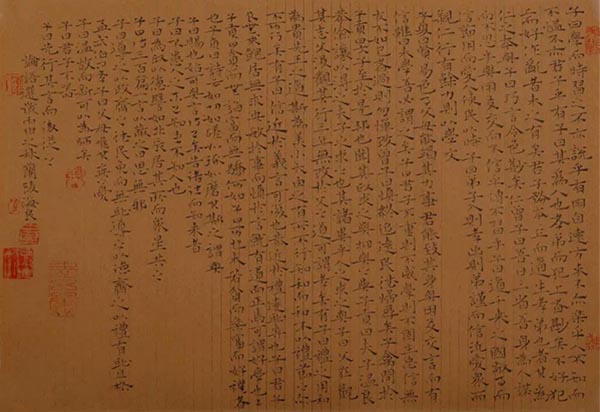 子曰學而時習之不亦說乎有朋自遠方來不亦樂乎人不知而
不慍不亦君子乎有子曰其為人也孝弟而好犯上者鮮矣不好犯
上而好作亂者未之有也君子務本本立而道生孝弟也者其為
仁之本與子曰巧言令色鮮矣仁曾子曰吾日三省吾身為人謀
而不忠乎與朋友交而不信乎傳不習乎子曰道千乘之國敬事而
信節用而愛人使民以時子曰弟子入則孝出則弟謹而信汎愛眾而
親仁行有餘力則以學文
子夏曰賢賢易色事父母能竭其力事君能致其身與朋友交言而有
信雖曰未學吾必謂之學矣子曰君子不重則不威學則不固主忠信無
友不如己者過則勿憚改曾子曰慎終追遠民德歸厚矣子禽問於
子貢曰夫子至於是邦也必聞其政求之與抑與之與子貢曰夫子溫良
恭儉讓以得之夫子之求之也其諸異乎人之求之與子曰父在觀
其志父沒觀其行三年無改於父之道可謂孝矣有子曰禮之用和
為貴先王之道斯為美小大由之有所不行知和而和不以禮節之亦
不可行也有子曰信近於義言可復也恭近於禮遠恥辱也子曰君子
食無求飽居無求安敏於事而慎於言就有道而正焉可謂好學也已
子貢曰貧而無諂富而無驕何如子曰可也未若貧而樂富而好禮者
也子貢曰詩云如切如磋如琢如磨其斯之謂與
子曰賜也始可與言詩已矣告諸往而知來者
子曰不患人之不己知患不知人也
子曰為政以德譬如北辰居其所而眾星共之
子曰詩三百一言以蔽之曰思無邪
子曰道之以政齊之以刑民免而無恥道之以德齊之以禮有恥且格
孟武伯問孝子曰父母唯其疾之憂
子曰溫故而知新可以為師矣
子曰君子不器
子曰先行其言而後從之
論語